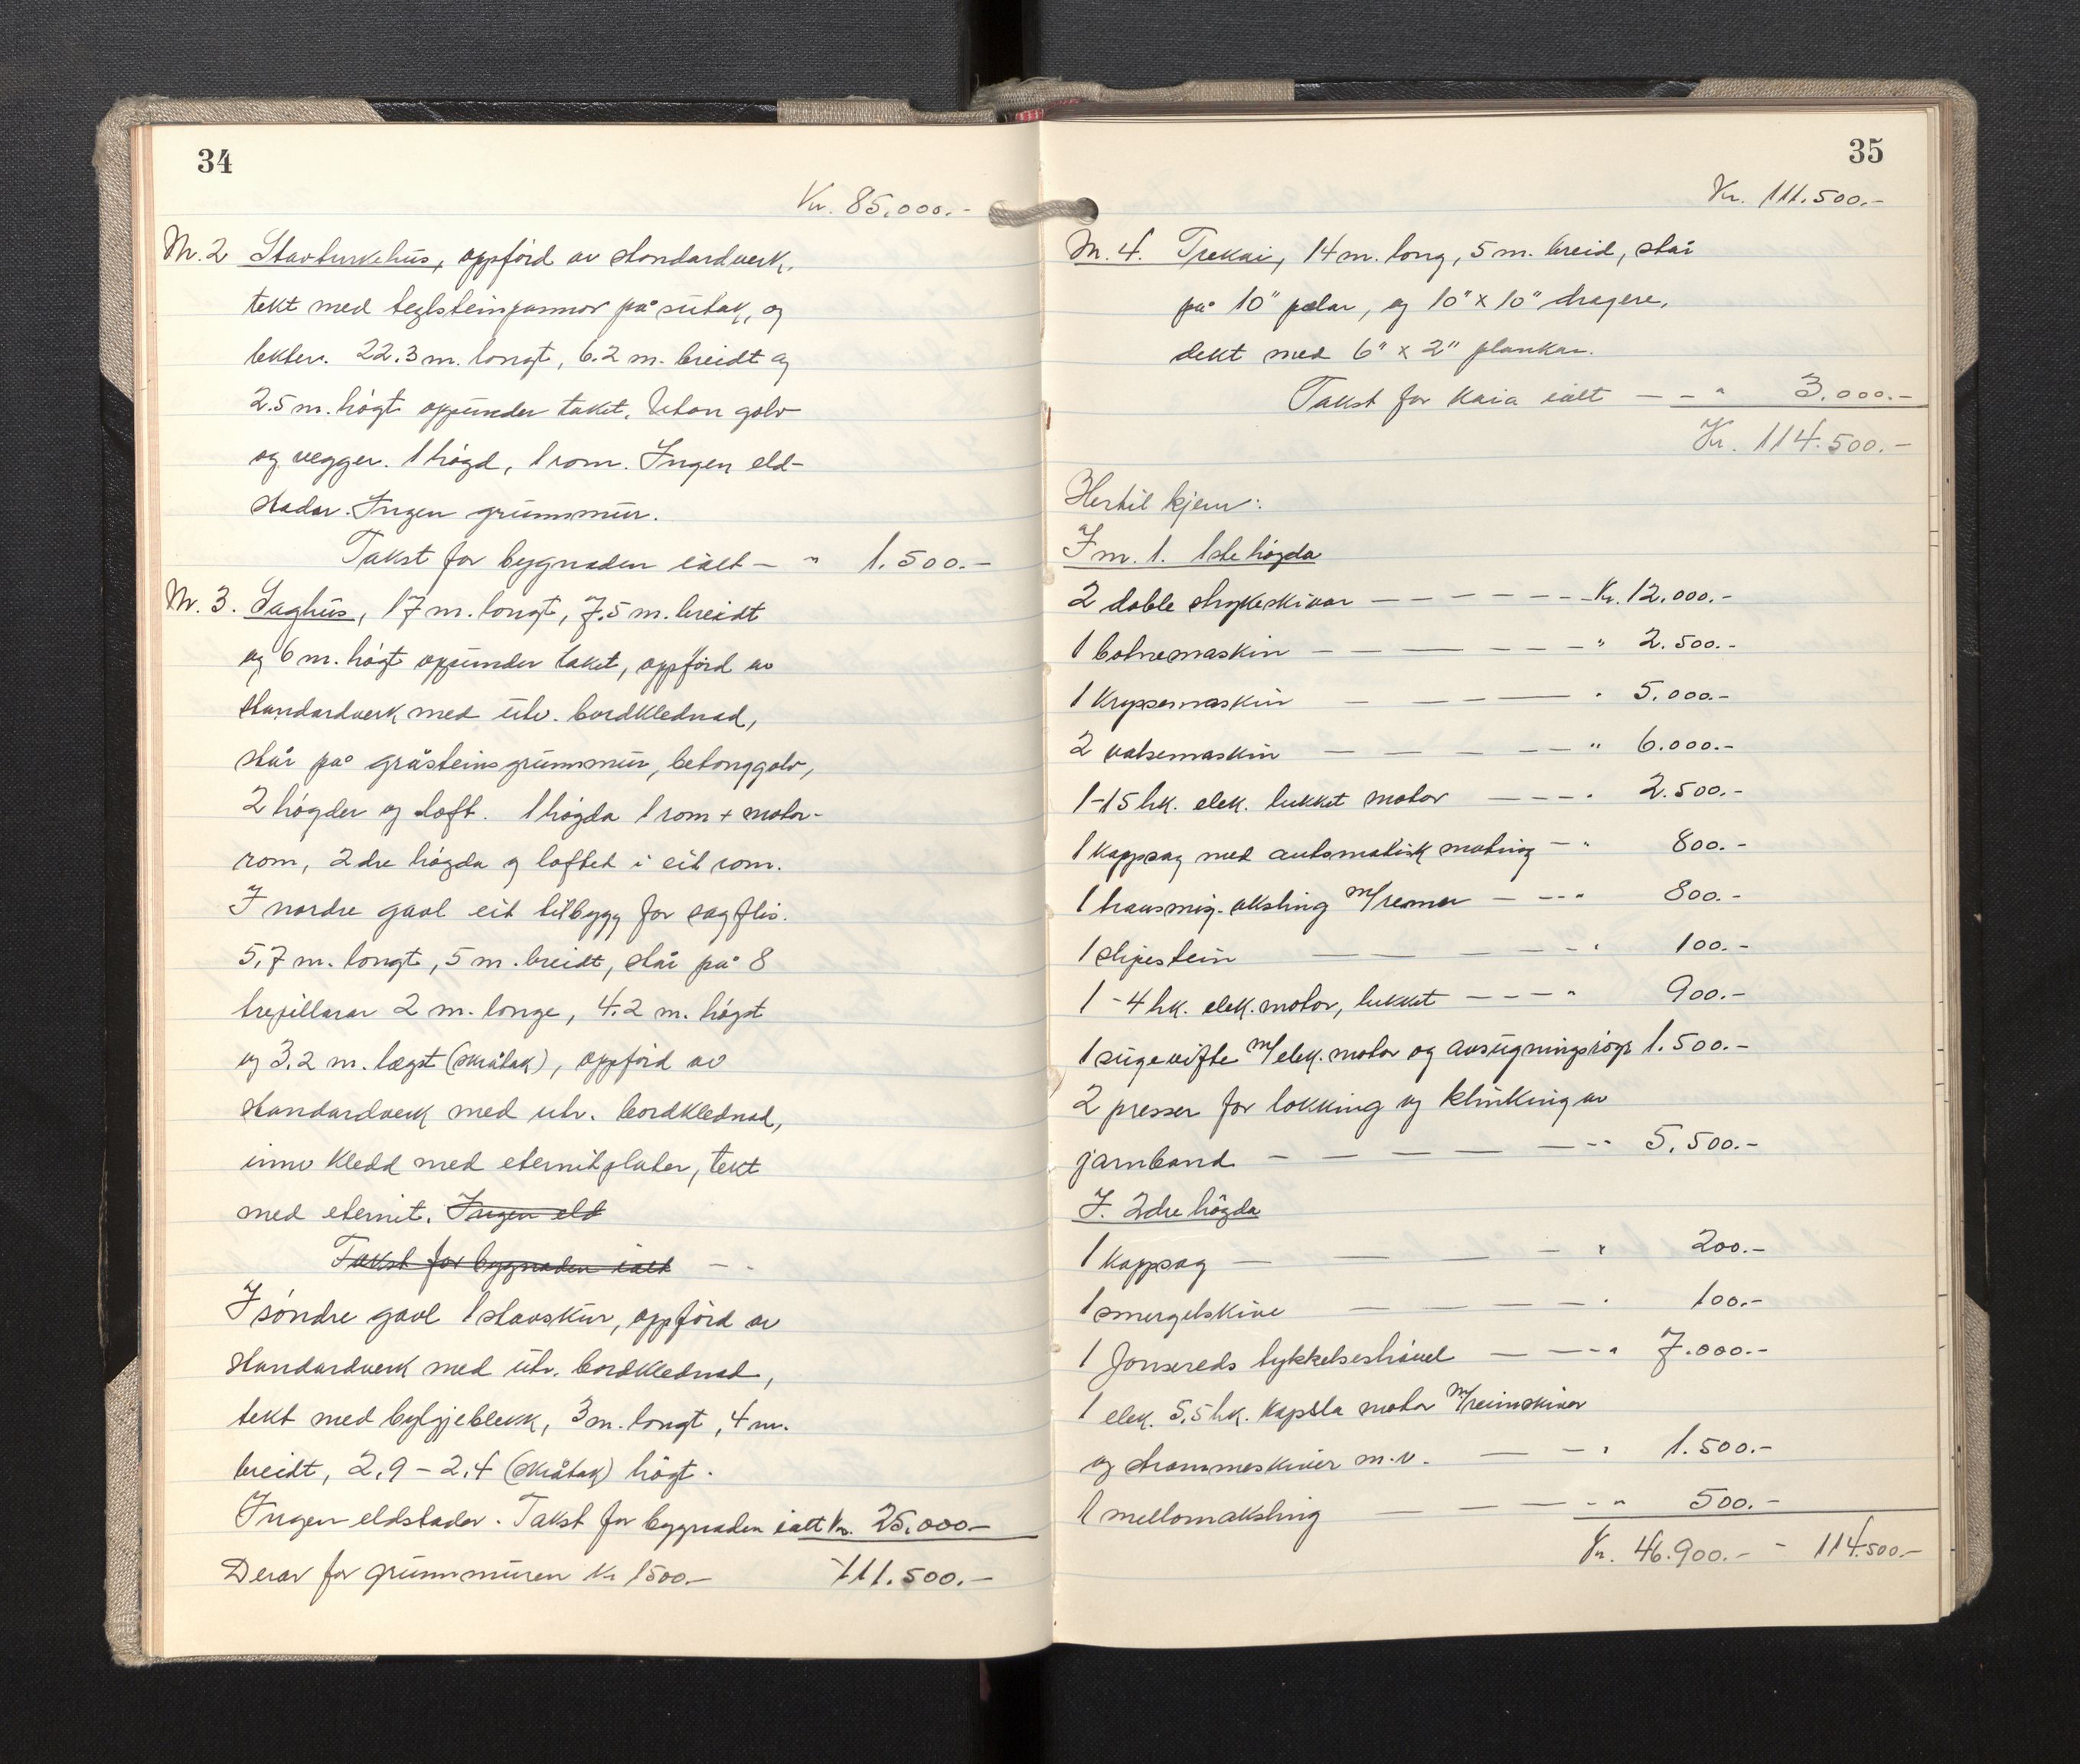 34
Kr. 85.000.-
Nr. 2 Stavturkehus, oppförd av standardverk,
tekt med teglsteinpannor på sutak, og
lekter. 22.3 m. longt, 6.2 m. breidt og
2.5 m. högt oppunder taket. Utan golv
og vegger. 1 högd, 1 rom. Ingen eld-
stadar. Ingen grunnmur.
Takst for bygnaden ialt — " 1.500.-
Nr. 3. Saghus, 17 m. longt, 7.5 m. breidt
og 6 m. högt oppunder taket, oppförd av
standardverk med utv. bordklednad,
står på gråsteins grunnmur, betonggolv,
2 högder og loft. 1 högda 1 rom + motor-
rom, 2dre högda og loftet i eit rom.
I nordre gavl eit tilbygg for sagflis.
5,7 m. longt, 5 m. breidt, står på 8
trepillarar 2 m. longe, 4.2 m. högst
og 3.2 m. lægst (skråtak), oppförd av
standardverk med utv. bordklednad,
innv kledd med eternitplater, tekt
med eternit. Ingen eld
Takst for bygnaden ialt — -
I söndre gavl 1 stavskur, oppförd av
standardverk med utv. bordklednad,
tekt med bylgjeblekk, 3 m. longt, 4 m.
breidt, 2,9 - 2,4 (skråtak) högt.
Ingen eldstader. Takst for bygnaden ialt Kr. 25.000-
Derav for grunnmuren kr 1500.- 111.500.-
35
Kr. 111.500.-
Nr. 4. Trekai, 14 m. long, 5 m. breid, står
på 10" pelar, og 10" x 10" dragere,
dekt med 6" x 2" plankar.
Takst for kaia ialt — - " 3.000.-
Kr. 114.500.-
Hertil kjem:
I nr. 1. 1ste högda
2 doble strykeskivar — — — Kr. 12.000.-
1 botnemaskin — — — " 2.500.-
1 kryssemaskin — — — " 5.000.-
2 valsemaskin — — — " 6.000.-
1-15 hk. elek. lukket motor — — " 2.500.-
1 kappsag med automatisk mating — " 800.-
1 transmig. aksling m/reimer — — " 800.-
1 slipestein — — — " 100.-
1 - 4 hk. elek. motor, lukket — — " 900.-
1 sugevifte m/elek. motor og avsugningsrör 1.500.-
2 presser for lokking og klinking av
jarnband — — — — " 5.500.-
I. 2dre högda
1 kappsag — — — " 200.-
1 smergelskive — — — " 100.-
1 Jonsereds tykkelseshövel — — " 7.000.-
1 elek. 5,5 hk. kapsla motor m/reimskiver
og strammeskiver m.v. — — " 1.500.-
1 mellomaksling — — — " 500.-
Kr. 46.900.- - 114.500.-